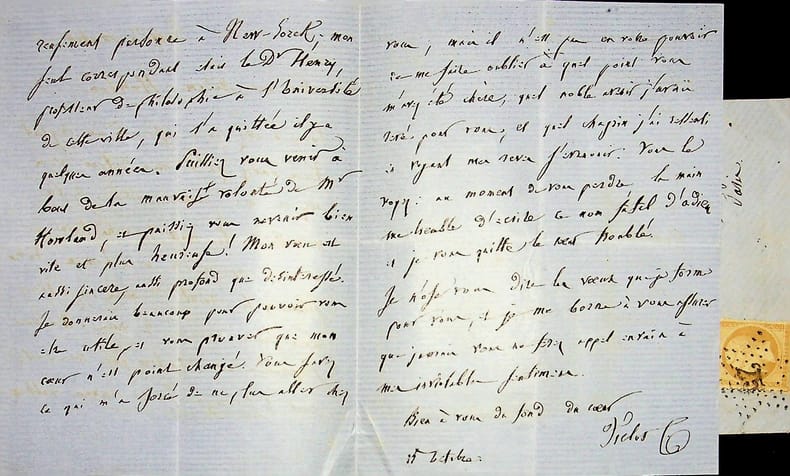 personne à New-Yorck. mon
seul correspondant était le Dr Henry,
professeur de philosophie à l'Université
de cette ville, qui l'a quittée il y a
quelques années. Puissiez vous venir à
bout de la mauvaise volonté de Mr
Howland, et puissiez vous revenir bien
vite et plus heureuse! Mon vœu est
aussi sincère, aussi profond que désintéressé.
Je donnerais beaucoup pour pouvoir vous
être utile, et vous prouver que mon
cœur n'est point changé. Vous savez
ce qui m'a forcé de ne plus aller chez
vous, mais il n'est pas en votre pouvoir
de me faire oublier à quel point vous
m'avez été chère, quel noble avenir j'avais
rêvé pour vous, et quel chagrin j'ai ressenti
en voyant mes rêves s'évanouir. Vous le
voyez: au moment de vous perdre, la main
me tremble d'écrire ce mot fatal d'adieu
et je vous quitte le cœur troublé.
Je n'ose vous dire les vœux que je forme
pour vous, et je me borne à vous assurer
que jamais vous ne ferez appel en vain à
mes inviolables sentimens.
Bien à vous du fond du cœur
15 8bre